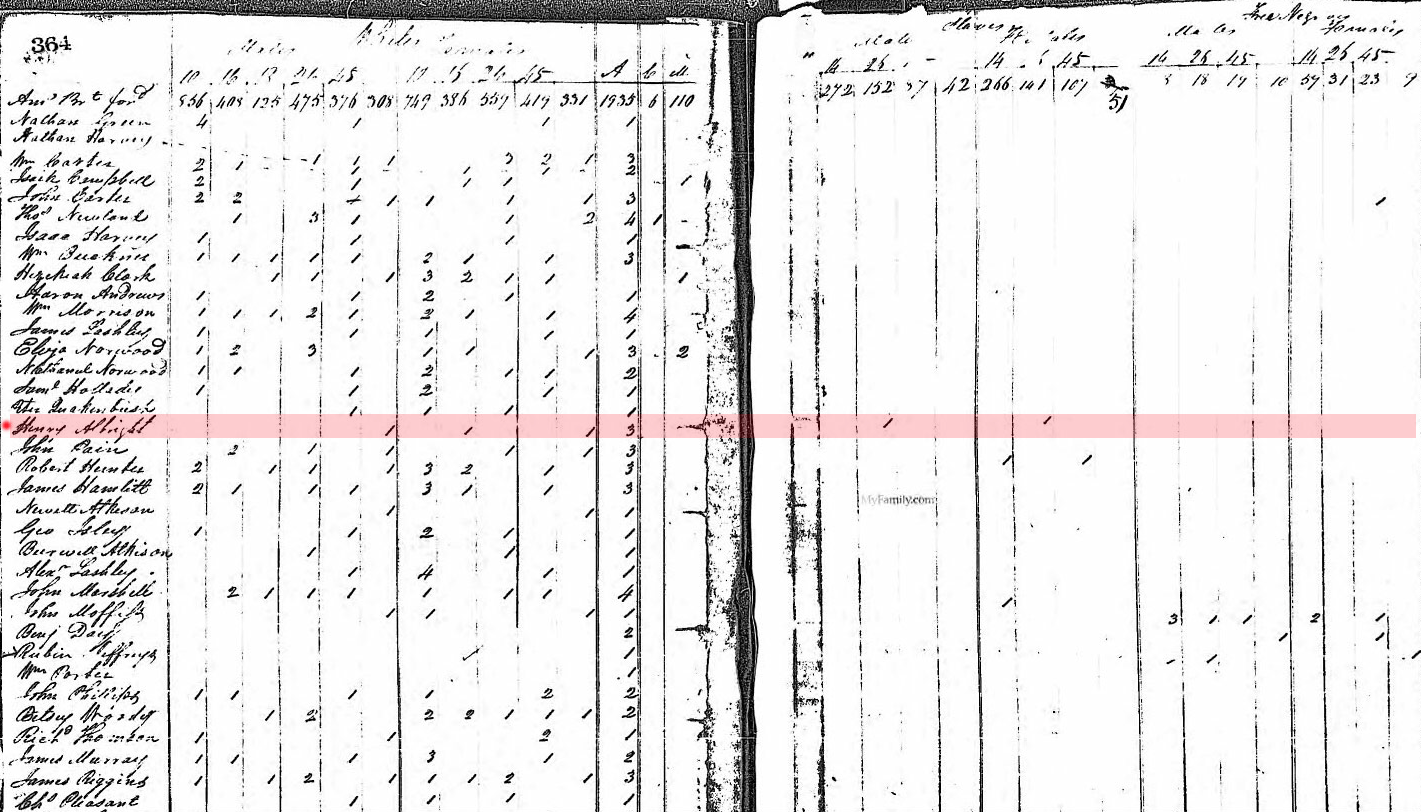 364
Whites Slaves Free Negroes
Males Females Male Males Females
10 16 18 26 45 10 16 26 45 A C M 14 26 14 45 14 26 45 14 26 45
Amt Brt ford 856 408 125 475 376 308 749 386 559 419 331 1935 6 110 272 152 87 42 266 141 107 51 8 18 19 10 59 31 23 9
Nathan Green 4 1 1 1
Nathan Harvey
Wm Carter 2 1 1 1 1 3 2 1 3
Isaik Campbell 2 1 1 1 2 1
John Carter 2 2 1 1 1 1 3 1
Thos Newland 1 3 1 1 2 4 1
Isaac Harvey 1 1 1 1
Wm Quakner 1 1 1 1 1 2 1 1 3
Hezekiah Clark 1 1 1 3 2 1 1 1
Aaron Andrews 1 1 2 1 1
Wm Morrison 1 1 1 2 1 2 1 1 4
James Lashley 1 1 1 1 1
Norwood 1 2 3 1 1 1 3 2
Nathaniel Norwood 1 1 1 2 1 1 2
Saml 1 1 2 1 1
Quakenbush 1 1 1 1
Henry Albright 1 1 1 3 1 1
John Pain 2 1 1 1 1 3 1 1
Robert Hunter 2 1 1 1 3 2 1 3
James Hamlitt 2 1 1 1 3 1 1 3
MyFamily.com
Newett Atkeson 1 1 1
Geo Isley 1 1 2 1 1
Burwell Atkison 1 1 1
Alexr Lashley 1 4 1 1
John Marshall 2 1 1 1 1 1 1 4 1
John Moffitt 1 1 1 1 3 1 1 2 1
Benj 2 1 1
Rubin 1 1 1
Wm Porter 1
John Phillips 1 1 1 1 2 2
Betsey Woody 1 2 2 2 1 1 1 2
Richd Thomson 1 1 2 1
James Murray 1 1 1 3 1 2
James Riggins 1 1 2 1 1 1 2 1 3
Chs Pleasant 1 1 1 1